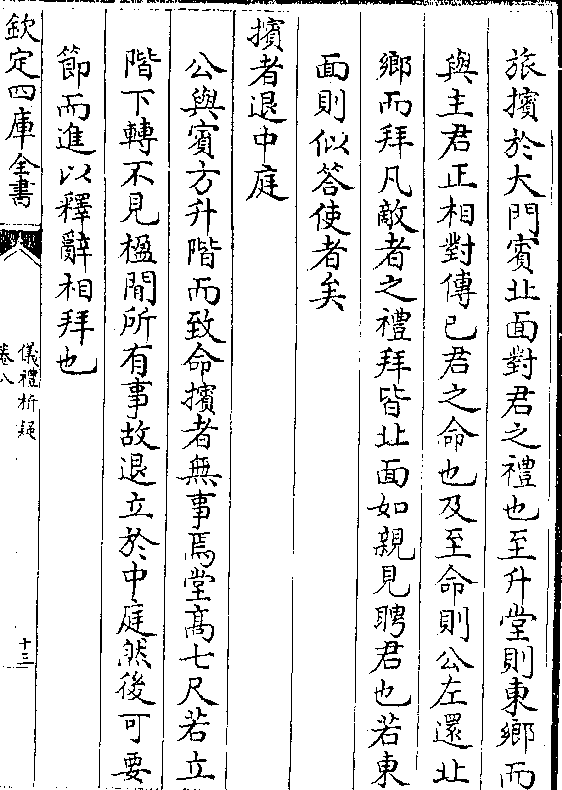 旅擯於大門賓北面對君之禮也至升堂則東鄉而
與主君正相對傳己君之命也及至命則公左還北
鄉而拜凡敵者之禮拜皆北面如親見聘君也若東
面則似答使者矣
擯者退中庭
公與賓方升階而致命擯者無事焉堂高七尺若立
階下轉不見楹間所有事故退立於中庭然後可要
節而進以釋辭相拜也
欽定四庫全書
儀禮析疑
卷八
十三